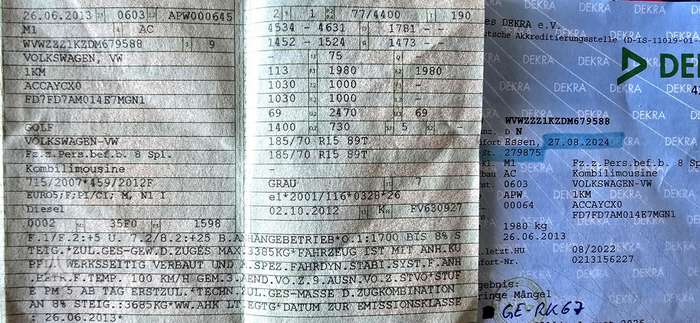 26.06.2013 0603 APW000645
M1 AC
WVWZZZ1KZDM679588 9
VOLKSWAGEN, VW
1KM
ACCAYCX0
FD7FD7AM014E7MGN1
GOLF
VOLKSWAGEN-VW
Fz.z.Pers.bef.b. 8 Spl.
Kombilimousine
715/2007*459/2012F
EURO5;F;PI/CI; M, N1 I
Diesel
0002 35F0 1598
2 1 77/4400 190
4534 - 4631 1781 -
1452 - 1524 1473 -
- 75
113 1980 1980
1030 1000 -
1030 1000 -
69 2470 69
1400 730 5 -
185/70 R15 89T
185/70 R15 89T
-
GRAU 7
e1*2001/116*0328*26
02.10.2012 K FV630927
F.1/F.2:+5 U. 7.2/8.2:+25 B.ANHÄNGEBETRIEB*O.1:1700 BIS 8% S
TEIG.*ZUL.GES-GEW.D.ZUGES MAX.3385KG*FAHRZEUG IST MIT ANH.KU
PFL. WERKSSEITIG VERBAUT UND A.SPEZ.FAHRDYN.STABI.SYST.F.ANH
.BETR.F.TEMP. 100 KM/H GEM.3.AEND.VO.Z.9.AUSN.VO.Z.STVO*STUF
E PM 5 AB TAG ERSTZUL.*TECHN.ZUL.GES-MASSE D.ZUGKOMBINATION
AN 8% STEIG.:3685KG*WW.AHK LT.EGTG*DATUM ZUR EMISSIONSKLASSE
: 26.06.2013*
es DEKRA e.V.
utsche Akkreditierungsstelle (D-IS-11019-01-
DEK
WVWZZZ1KZDM679588
D N
Essen, 27.08.2024
279875
M1 Fz.z.Pers.bef.b. 8
AC Kombilimousine
0603 VOLKSWAGEN, VW
APW 1KM
00064 ACCAYCX0
FD7FD7AM014E7MGN1
1980 kg
26.06.2013
letzt.HU 08/2022
0213156227
gebnis:
ringe Mängel
GE-RK67